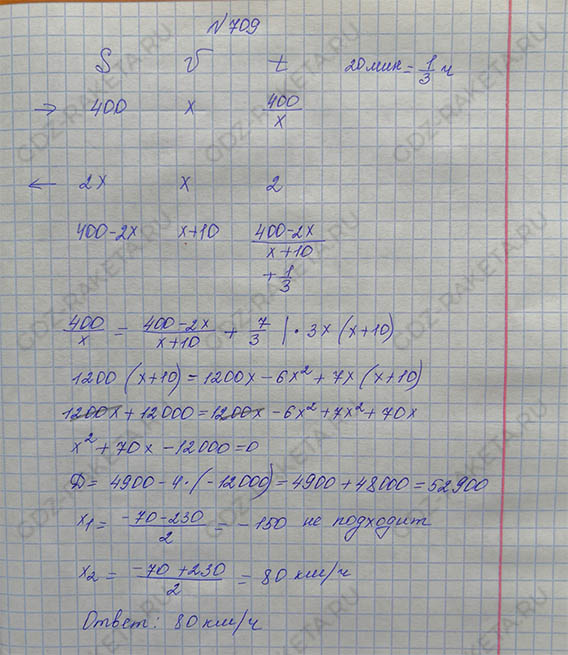 N709
S v t 20 мин = 1/3 ч
→ 400 x 400/x
← 2x x 2
400-2x x+10 (400-2x)/(x+10)
+ 1/3
400/x = (400-2x)/(x+10) + 7/3 | · 3x (x+10)
1200 (x+10) = 1200x - 6x² + 7x (x+10)
1200x + 12000 = 1200x - 6x² + 7x² + 70x
x² + 70x - 12000 = 0
Д = 4900 - 4 · (-12000) = 4900 + 48000 = 52900
x₁ = (-70-230)/2 = -150 не подходит
x₂ = (-70+230)/2 = 80 км/ч
Ответ: 80 км/ч
GDZ-RAKETA.RU